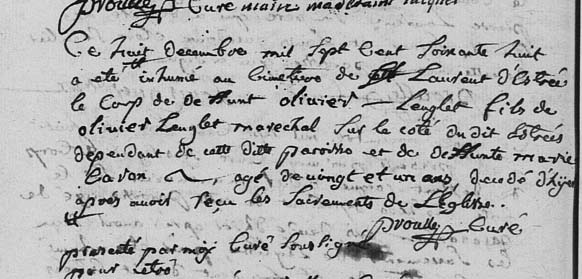 Curé
Ce huit Decembre mil sept Cent soixante huit
a eté inhumé au Cimetiere de St Laurent d'Estrée
le Corp de deffunt olivier Lenglet fils de
olivier Lenglet marechal sur le coté du dit Estrées
dependant de cette ditte paroisse et de deffunte marie
Caron agé de vingt et un ans decedé d'hyer
après avoir reçu les sacrements de L'Eglise.
Curé
presenté par moy Curé soussigné
pour